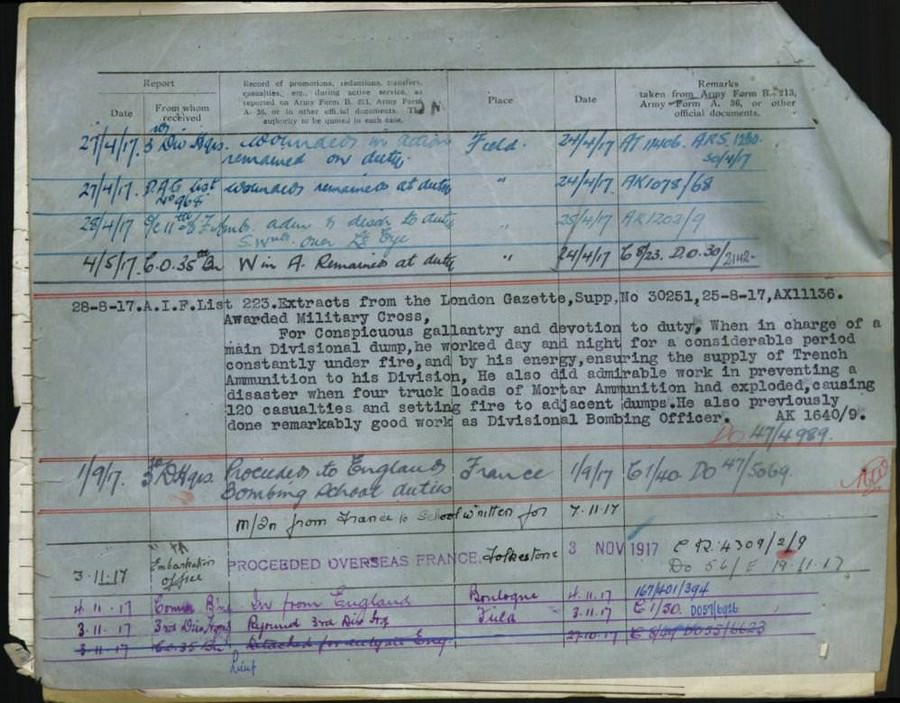 Report
Date
From whom received
Record of promotions, reductions, transfers,
casualties, etc., during active service, as
reported on Army Form B. 213, Army Form
A. 36, or in other official documents. The
authority to be quoted in each case.
Place
Date
Remarks
taken from Army Form B. 213,
Army Form A. 36, or other
official documents.
27/4/17. 3 Div Hqrs. Wounded in action Field. 24/4/17
remained on duty. 30/4/17
27/4/17. List wounded remained at duty " 24/4/17. AK1078/68
28/4/17 adm & disch to duty " 25/4/17 AK1202/9
over Lt Eye
4/5/17. C.O. 35th Bn W in A. Remained at duty " 24/4/17. D.O. 30/2142.
28-8-17.A.I.F.List 223.Extracts from the London Gazette,Supp,No 30251,25-8-17,AX11136.
Awarded Military Cross,
For Conspicuous gallantry and devotion to duty, When in charge of a
main Divisional dump,he worked day and night for a considerable period
constantly under fire,and by his energy,ensuring the supply of Trench
Ammunition to his Division, He also did admirable work in preventing a
disaster when four truck loads of Mortar Ammunition had exploded,causing
120 casualties and setting fire to adjacent dumps.He also previously
done remarkably good work as Divisional Bombing Officer. AK 1640/9.
DO 47/4989.
1/9/17. 3rd D Hqrs. Proceeded to England France 1/9/17 C1/40. DO 47/5069.
Bombing School duties
M/In from France to School written for 7.11.17
3.11.17 Embarkation Office PROCEEDED OVERSEAS FRANCE. Folkestone 3 NOV 1917 C.R. 4309/2/9
Do 56/E 19.11.17
4.11.17 In from England Boulogne 4.11.17 167/401/394
3.11.17 3rd Div Hqrs Rejoined 3rd Div Hq Field 3.11.17 C1/50.
3.11.17 C.O. 35 Bn Detached for duty at Eng. 27.10.17
Lieut